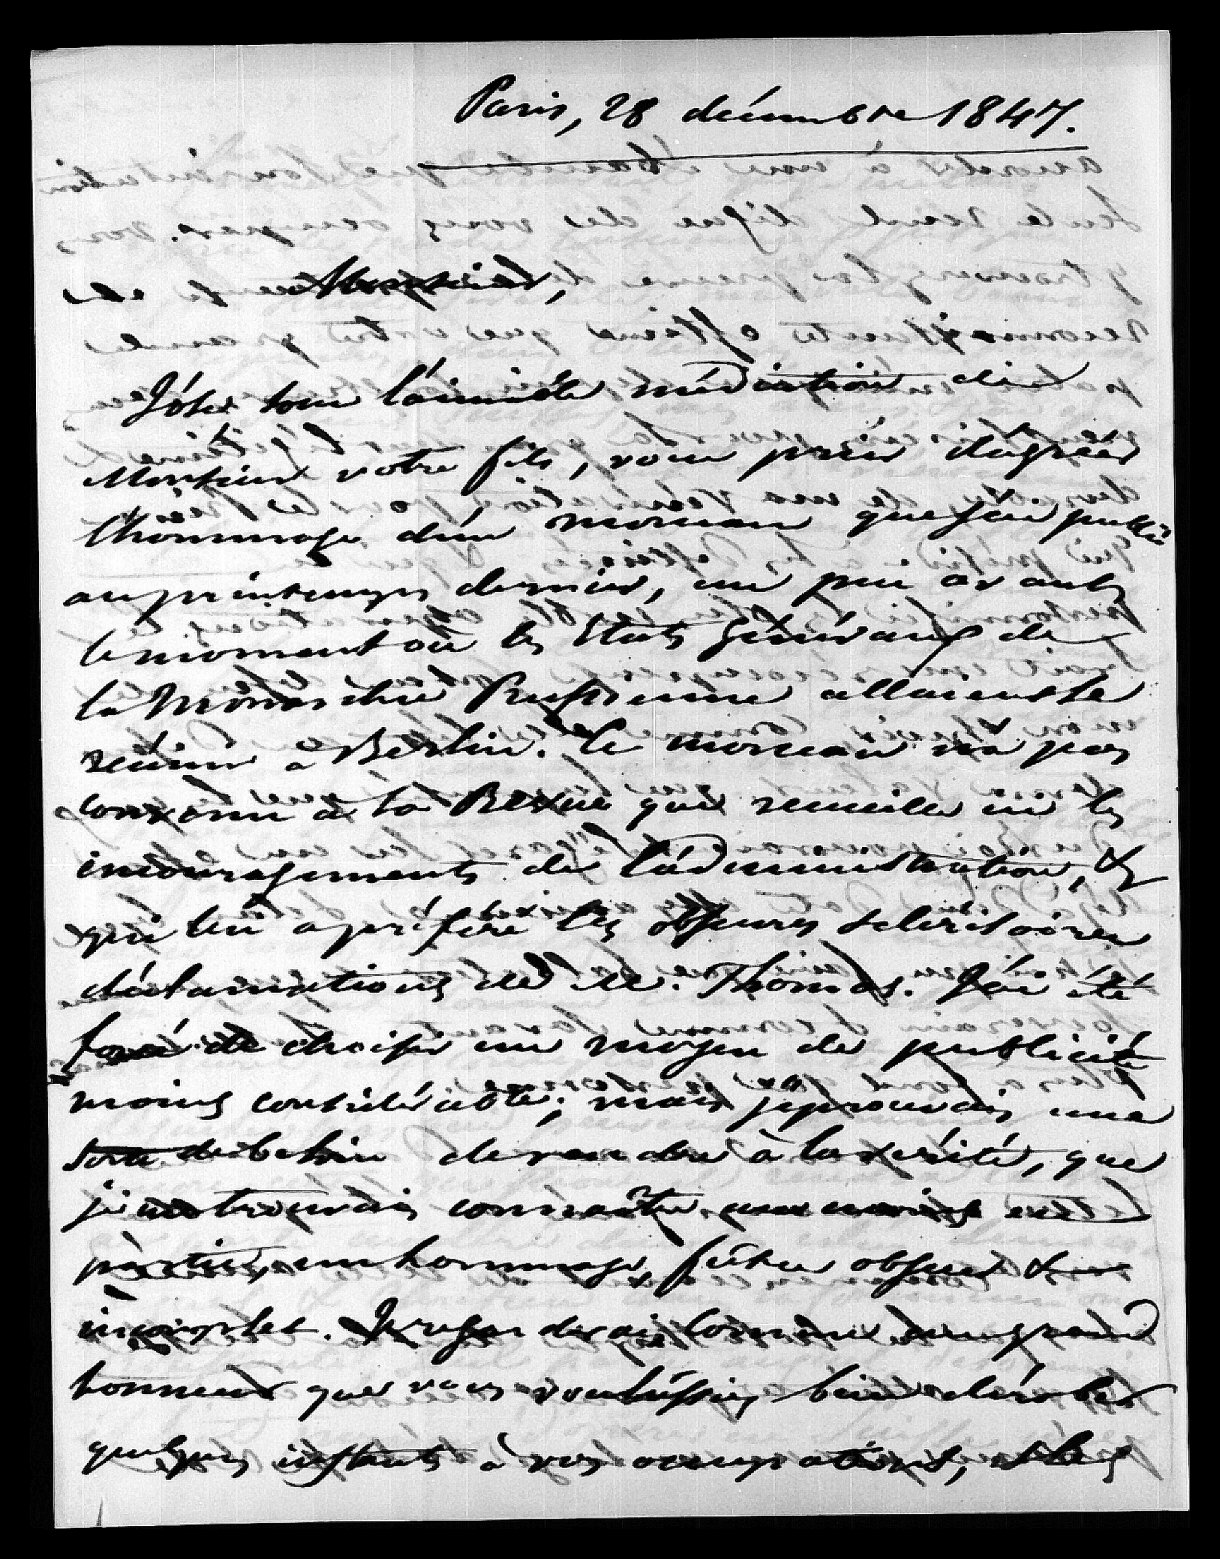 Paris, 28 décembre 1847.
Monsieur,
J'ose sous l'aimable médiation de
Monsieur votre fils, vous prier d'agréer
l'hommage d'un morceau que j'ai publié
au printemps dernier, un peu avant
le moment où les États Généraux de
la Monarchie Prussienne allaient se
réunir à Berlin. Ce morceau n'a pas
convenu à la Revue que recueille ici les
encouragements de l'administration, &
qui lui a préféré les obscurs
déclamations de M. Thomas. J'ai été
forcé de choisir un moyen de publicité
moins considérable; mais j'éprouvais une
sorte de besoin de rendre à la vérité, que
je trouvais
partie, un hommage, fût-ce obscur &
incomplet. Je regarderai comme un grand
honneur que vous voulussiez bien dérober
quelques instants à vos occupations,